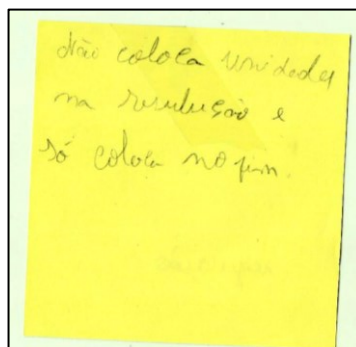 Não coloca unidades
na resolução e
só coloca no fim.